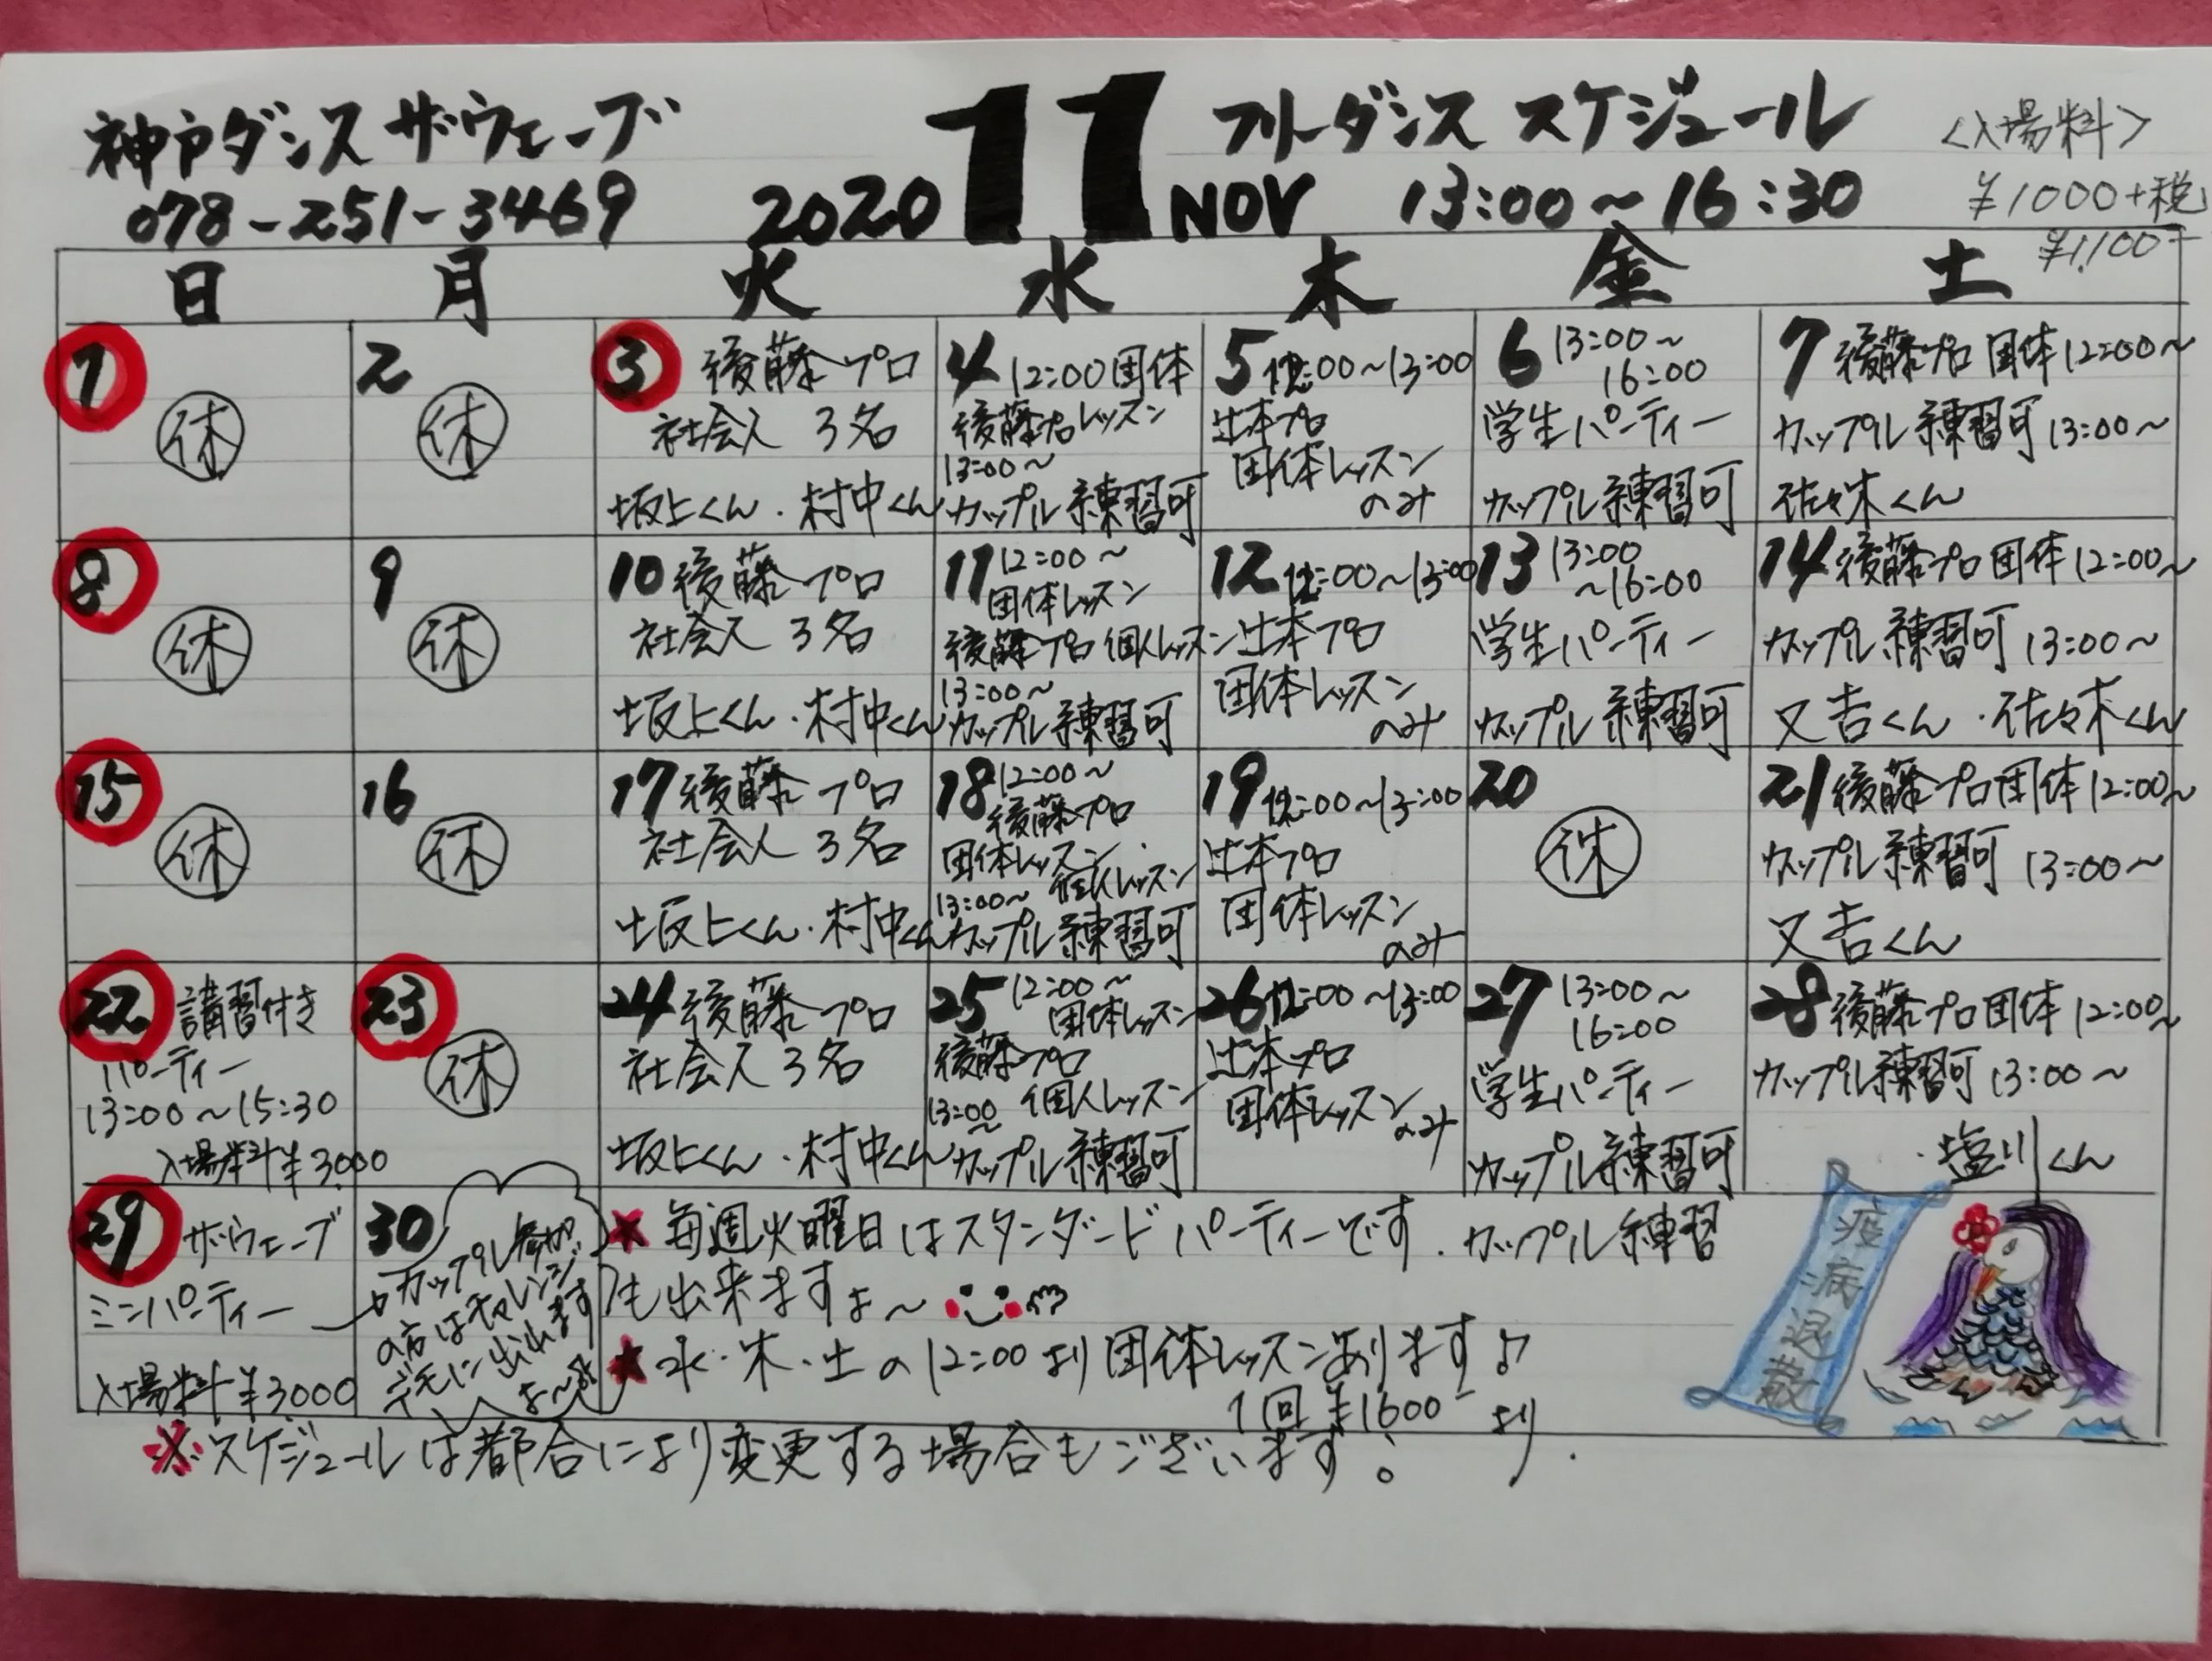 神戸ダンス ザウェーブ
078-251-3469
2020 11 NOV
フリーダンス スケジュール
13:00〜16:30
<入場料>
¥1000+税
¥1,100-
日 月 火 水 木 金 土
1
休
2
休
3 後藤プロ
社会人 3名
坂上くん・村中くん
4 12:00団体
後藤プロレッスン
13:00〜
カップル練習可
5 12:00〜13:00
辻本プロ
団体レッスン
のみ
6 13:00〜
16:00
学生パーティー
カップル練習可
7 後藤プロ 団体12:00〜
カップル練習可13:00〜
佐々木くん
8
休
9
休
10 後藤プロ
社会人 3名
坂上くん・村中くん
11 12:00〜
団体レッスン
後藤プロ個人レッスン
13:00〜
カップル練習可
12 12:00〜13:00
辻本プロ
団体レッスン
のみ
13 13:00
〜16:00
学生パーティー
カップル練習可
14 後藤プロ団体12:00〜
カップル練習可13:00〜
又吉くん・佐々木くん
15
休
16
休
17 後藤プロ
社会人 3名
坂上くん・村中くん
18 12:00〜
後藤プロ
団体レッスン・
13:00〜 個人レッスン
カップル練習可
19 12:00〜13:00
辻本プロ
団体レッスン
のみ
20
休
21 後藤プロ団体12:00〜
カップル練習可 13:00〜
又吉くん
22 講習付き
パーティー
13:00〜15:30
入場料¥3,000
23
休
24 後藤プロ
社会人 3名
坂上くん・村中くん
25 12:00〜
団体レッスン
後藤プロ
13:00〜 個人レッスン
カップル練習可
26 12:00〜13:00
辻本プロ
団体レッスン
のみ
27 13:00〜
16:00
学生パーティー
カップル練習可
28 後藤プロ団体12:00〜
カップル練習可13:00〜
・塩川くん
29 ザウェーブ
ミニパーティー
入場料¥3000
30
カップル参加
の方はチャレンジ
デモに出れます
よ〜
★ 毎週火曜日はスタンダードパーティーです. カップル練習
も出来ますよ〜
★ 水・木・土の12:00より団体レッスンあります♪
1回¥1600-より.
※スケジュールは都合により変更する場合もございます。
疫病退散